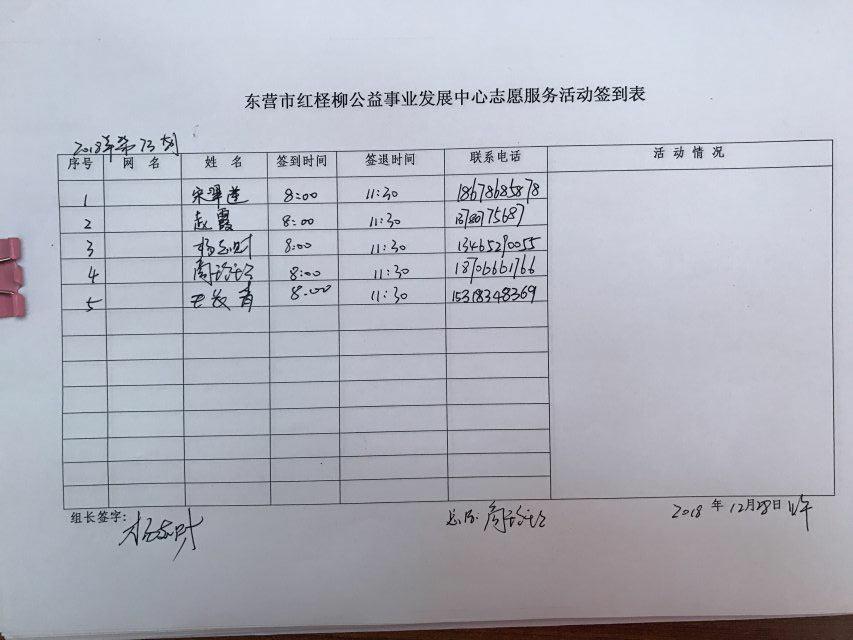 东营市红柽柳公益事业发展中心志愿服务活动签到表
2018年第73期
序号 网 名 姓 名 签到时间 签退时间 联系电话 活 动 情 况
1 宋翠莲 8:00 11:30 18678685878
2 赵霞 8:00 11:30 13780775687
3 8:00 11:30 13465290055
4 8:00 11:30 18706661766
5 青 8:00 11:30 15318348369
组长签字:
2018 年 12月28日